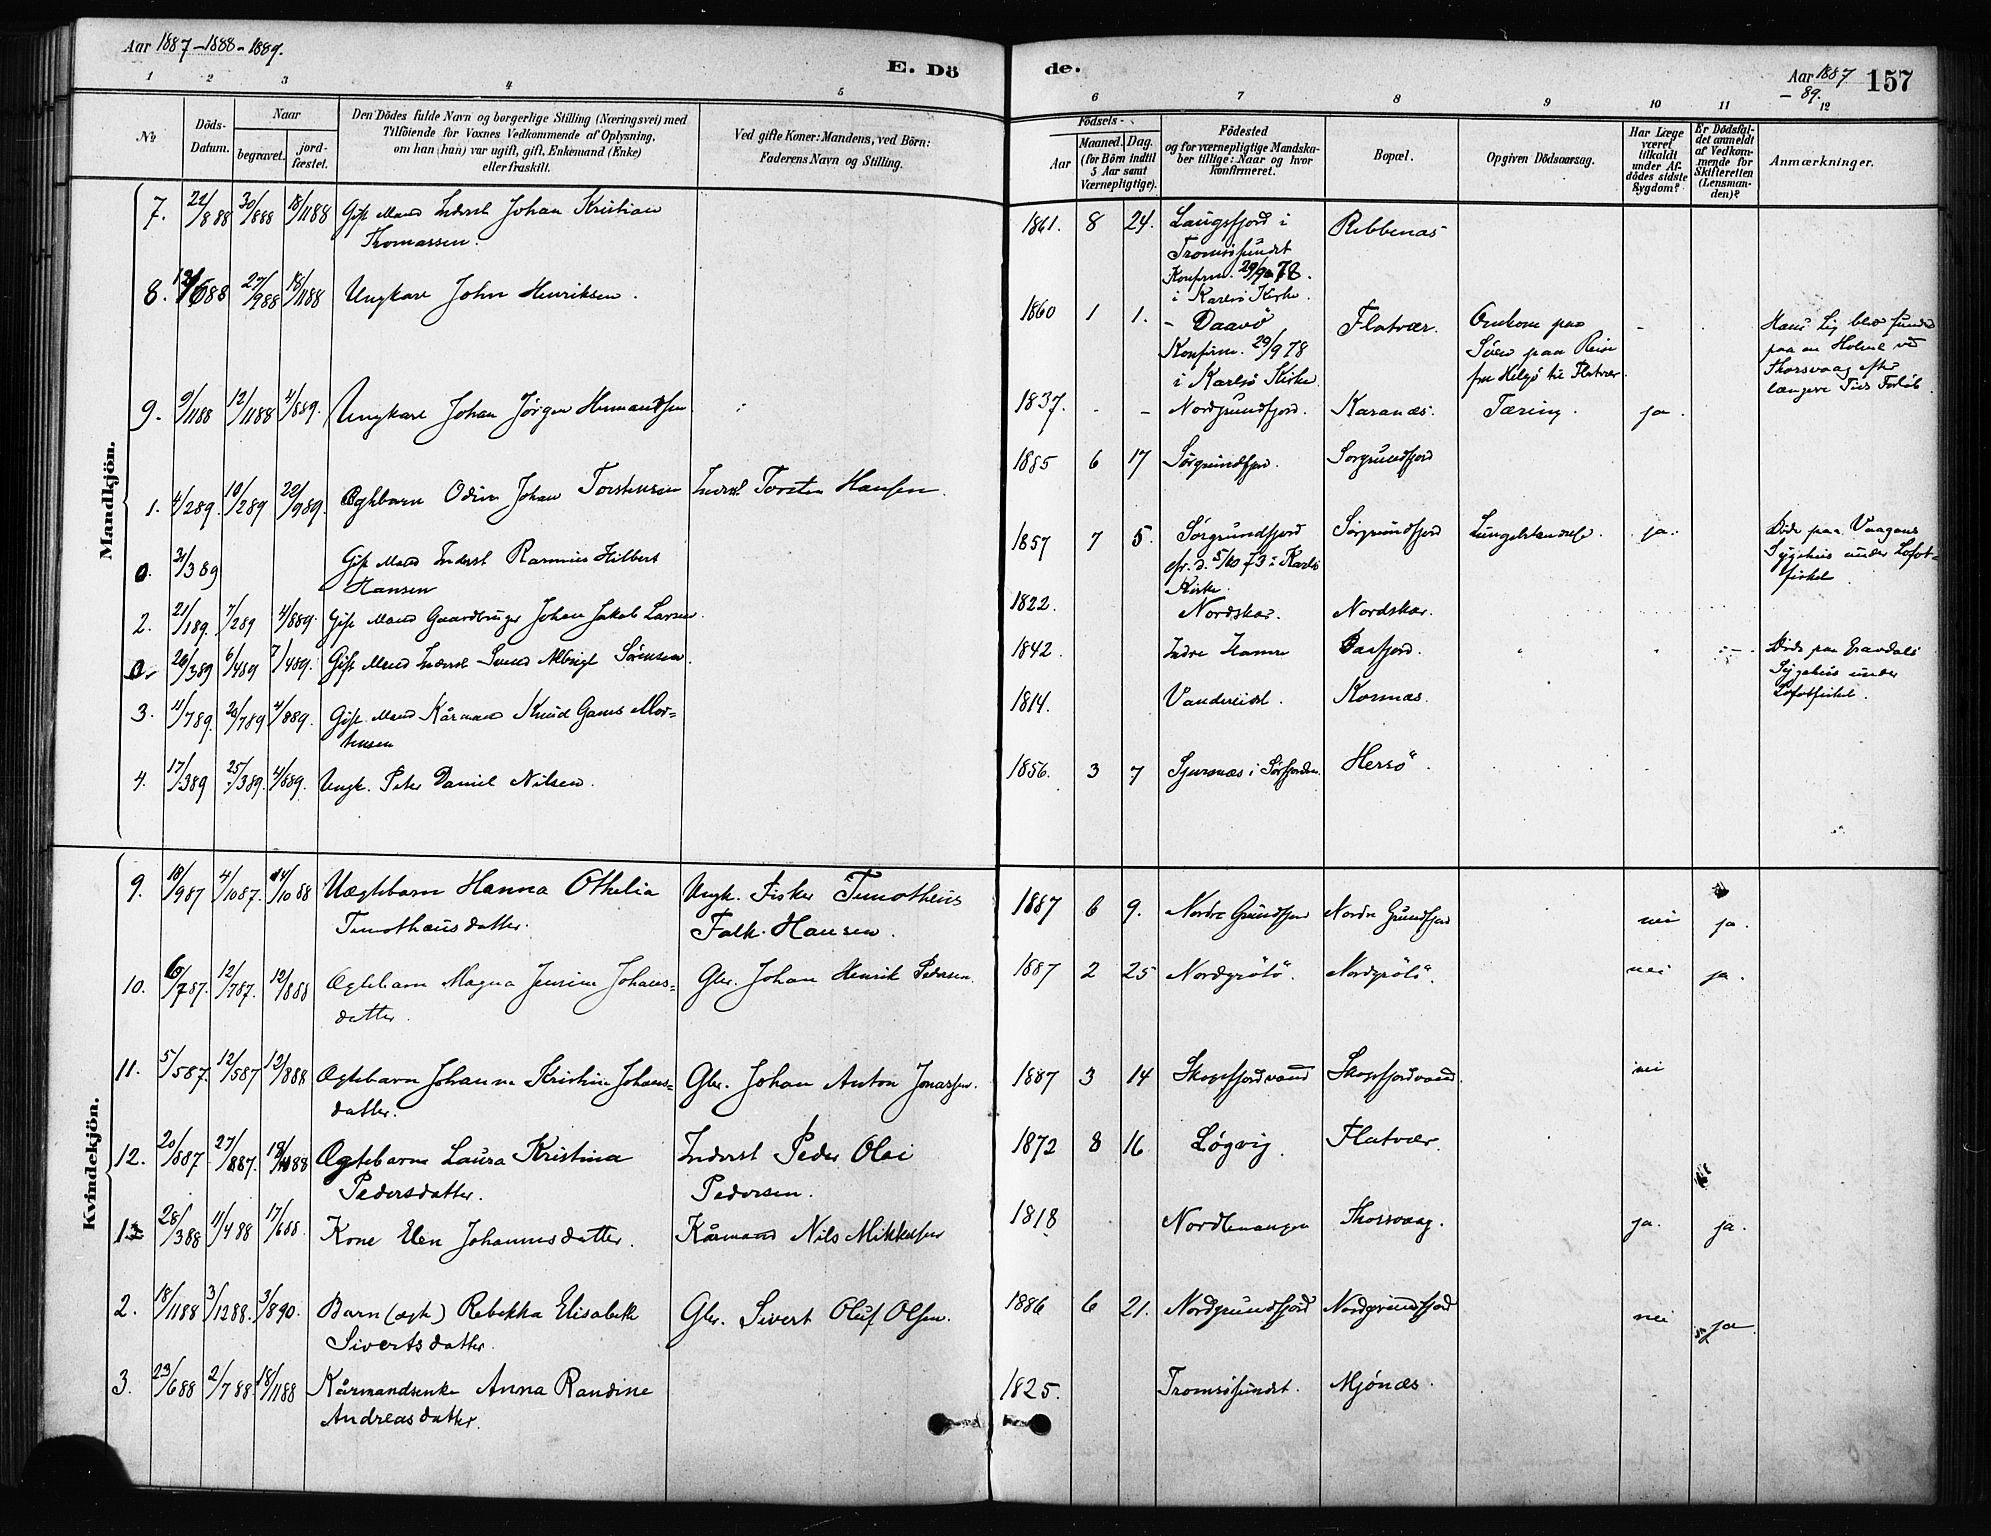 Aar 1887-1888-1889.
E. Dö
de.
Aar 1887
- 89.
157
1 2 3 4 5 6 7 8 9 10 11 12
No
Döds-
Datum.
Naar
begravet.
jord-
fæstet.
Den Dödes fulde Navn og borgerlige Stilling (Næringsvei) med
Tilföiende for Voxnes Vedkommende af Oplysning,
om han (hun) var ugift, gift, Enkemand (Enke)
eller fraskilt.
Ved gifte Koner: Mandens, ved Börn:
Faderens Navn og Stilling.
Födsels-
Aar
Maaned. Dag.
(for Börn indtil
5 Aar samt
Værnepligtige).
Födested
og for værnepligtige Mandska-
ber tillige: Naar og hvor
konfirmeret.
Bopæl.
Opgiven Dödsaarsag.
Har Læge
været
tilkaldt
under Af-
dödes sidste
Sygdom?
Er Dödsfal-
det anmeldt
af Vedkom-
mende for
Skifteretten
(Lensman-
den)?
Anmærkninger.
Mandkjön.
7. 22/888 30/888 18/1188 Gift Mand Inderst Johan Kristian
Thomassen.
1861. 8 24. Langsfjord i Ribbenæs
Tromsösundet
Konfirm. 29/9 78.
i Karlsö Kirke.
8. 27/988 18/1188 Ungkarl John Henriksen.
1860 1 1. - Daavö Flatvær. Omkom paa -
Konfirm. 29/9 78 Söen paa Reise
i Karlsö Kirke fra Helgö til Flatvær.
Hans Lig blev funden
paa en Holme ved
Thorsvaag efter
længere Tids Forløb.
9. 9/1188 12/1188 4/889. Ungkarl Johan Jörgen Hermandsen
1837. - - Nordgrundfjord. Karanæs. Tæring. ja.
1. 4/289. 19/289 22/989. Ægtebarn Odin Johan Torstensen Inderst Torsten Hansen.
1885 6 17 Sørgrundfjord. Sørgrundfjord
0. 31/389 Gift Mand Inderst Rasmus Hilbert
Hansen
1857 7 5. Sørgrundfjord Sørgrundfjord Lungebetændelse. ja.
cfr. d. 5/10 73 i Karlsö
Kirke.
Døde paa Vaagans
Sygehus under Lofot-
fisket.
2. 21/189. 7/289 4/889. Gift Mand Gaardbruger Johan Jakob Larsen.
1822. Nordskar. Nordskar.
0. 26/389 6/489 7/489. Gift Mand Inderst Albrigt Sørensen.
1842. Indre Hamre Dasfjord.
Døde paa Gravdals
Sygehus under
Lofotfisket.
3. 11/789. 20/789 4/889. Gift Mand Kårmand Knud Gams Mor-
tensen
1814. Vandereidet. Kornæs.
4. 17/389 25/389. 4/889. Ungk. Peter Daniel Nilsen.
1856. 3 7 Sjursnæs i Sørfjorden. Hersö.
Kvindekjön.
9. 18/987 4/1087. 14/1088 Uægtebarn Hanna Othelia Ungk. Fisker Timotheus
Timothæusdatter. Falk-Hansen.
1887 6 9. Nordre Grundfjord Nordre Grundfjord nei ja.
10. 6/787. 12/787. 12/888 Ægtebarn Magna Jensine Johans= Gbr. Johan Henrik Pedersen.
datter.
1887 2 25 Nordgrötö. Nordgrötö. nei ja.
11. 5/587. 12/587 12/888 Ægtebarn Johanna Kristine Johans= Gbr. Johan Anton Jonassen.
datter.
1887 3 14 Skogsfjordvand Skogsfjordvand. nei
12. 20/887 27/887. 18/1188 Ægtebarn Laura Kristina Inderst Peder Olai
Pedersdatter. Pedersen.
1872 8 16 Løgvig. Flatvær.
1 28/388 11/488 17/688. Kone Elen Johannesdatter. Kårmand Nils Mikkelsen
1818 Nordlenangen Thorsvaag. ja. ja.
2. 18/1188 3/1288. 3/890. Barn (ægt.) Rebekka Elisabeth Gbr. Sivert Oluf Olsen.
Sivertsdatter.
1886 6 21. Nordgrundfjord Nordgrundfjord nei ja
3. 23/688 2/788 18/1188 Kårmandsenke Anna Randine
Andreasdatter.
1825. Tromsösundet. Mjönæs.